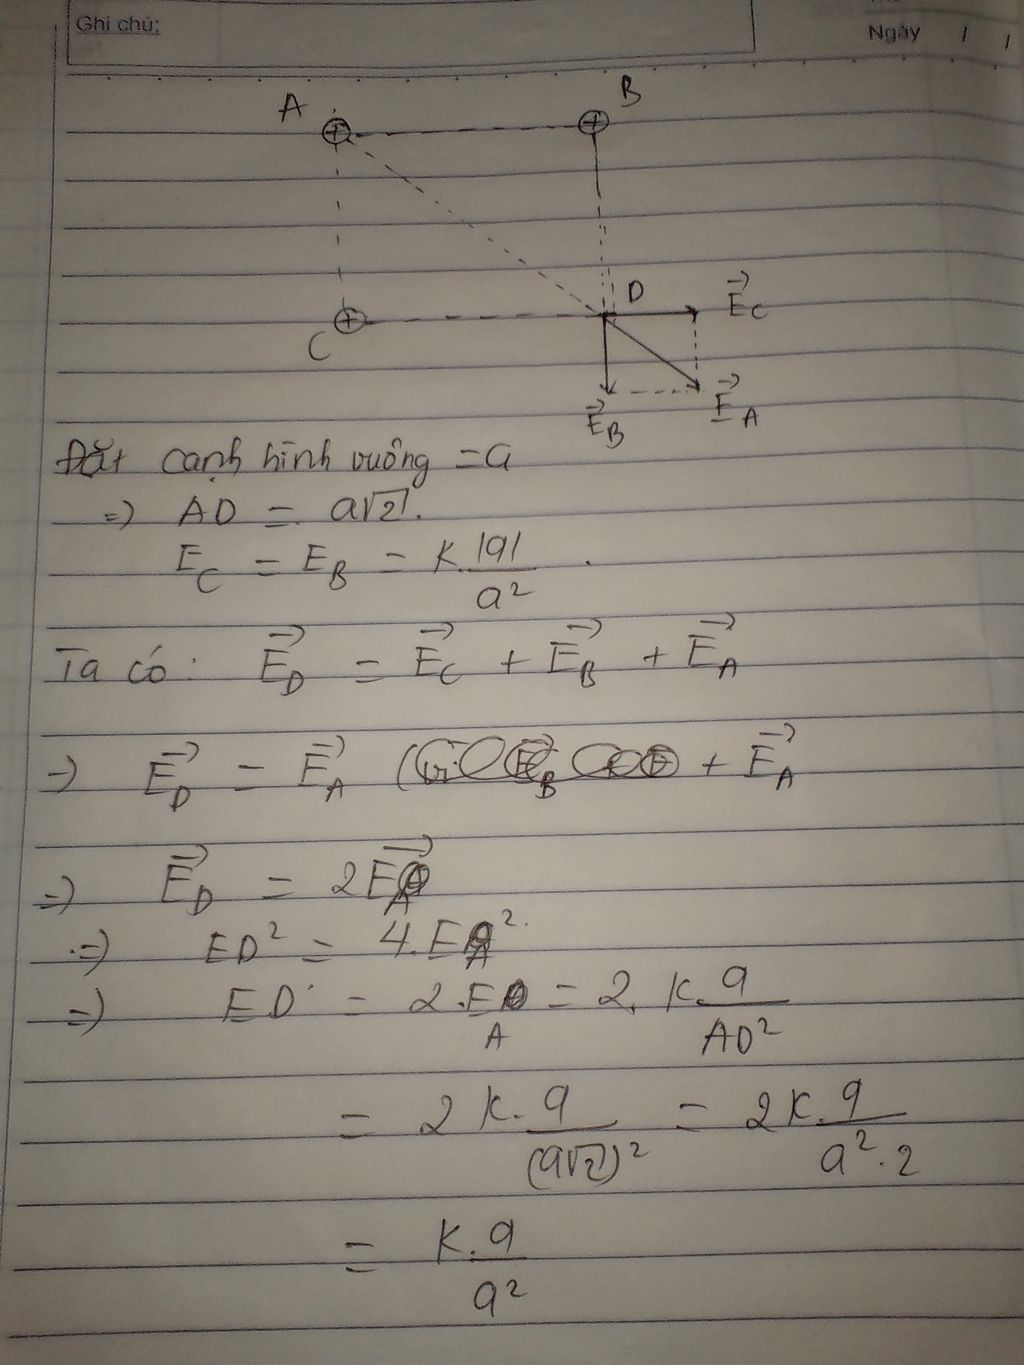 Ghi chú:
Ngày / /
A
B
D
E⃗_C
C
E⃗_B
E⃗_A
Đặt cạnh hình vuông = a
=) AD = a√2.
E_C = E_B = k.|q|/a² .
Ta có: E⃗_D = E⃗_C + E⃗_B + E⃗_A
=) E⃗_D = E⃗_A + E⃗_A
=) E⃗_D = 2E⃗_A
=) ED² = 4.E_A².
=) ED = 2.E_A = 2.k.q/AD²
= 2k.q/(a√2)² = 2k.q/a².2
= k.q/a²